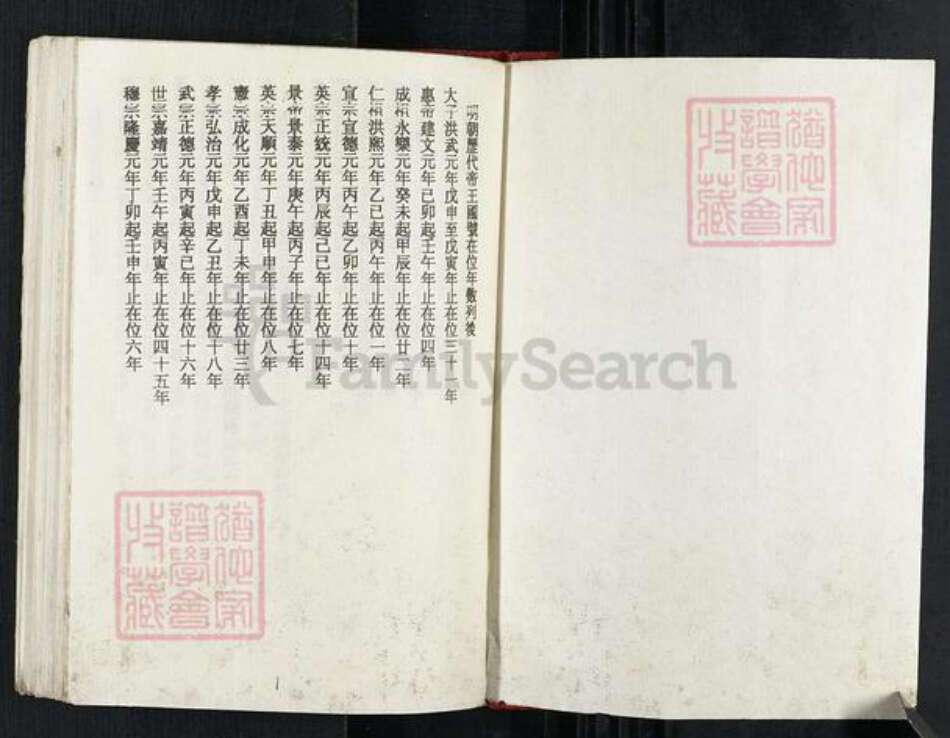 明朝歷代帝王國號在位年數列後
太子洪武元年戊申至戊寅年止在位三十一年
惠帝建文元年己卯起壬午年止在位四年
成祖永樂元年癸未起甲辰年止在位廿二年
仁祖洪熙元年乙巳起丙午年止在位一年
宣宗宣德元年丙午起乙卯年止在位十年
英宗正統元年丙辰起己巳年止在位十四年
景帝景泰元年庚午起丙子年止在位七年
英宗天順元年丁丑起甲申年止在位八年
憲宗成化元年乙酉起丁未年止在位廿三年
孝宗弘治元年戊申起乙丑年止在位十八年
武宗正德元年丙寅起辛巳年止在位十六年
世宗嘉靖元年壬午起丙寅年止在位四十五年
穆宗隆慶元年丁卯起壬申年止在位六年
1
譜學會
收藏
譜學會
收藏
FamilySearch